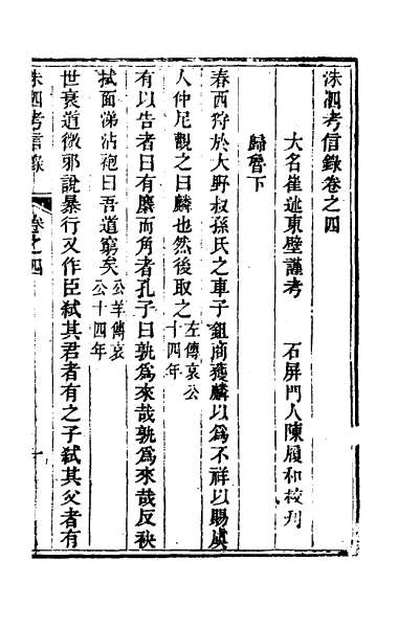 洙泗考信錄卷之四
大名崔述東壁謹考 石屏門人陳履和校刋
歸魯下
春西狩於大野叔孫氏之車子鉏商獲麟以爲不祥以賜虞
人仲尼觀之曰麟也然後取之左傳哀公十四年
有以告者曰有麇而角者孔子曰孰爲來哉孰爲來哉反袂
拭面涕沾袍曰吾道窮矣公羊傳哀公十四年
世衰道微邪說暴行又作臣弑其君者有之子弑其父者有
洙泗考信錄 卷之四 一